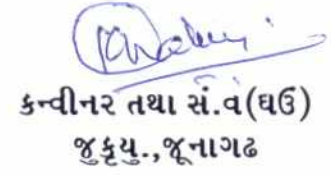 કન્વીનર તથા સં.વૈ(ઘઉં)
જુકૃયુ.,જૂનાગઢ